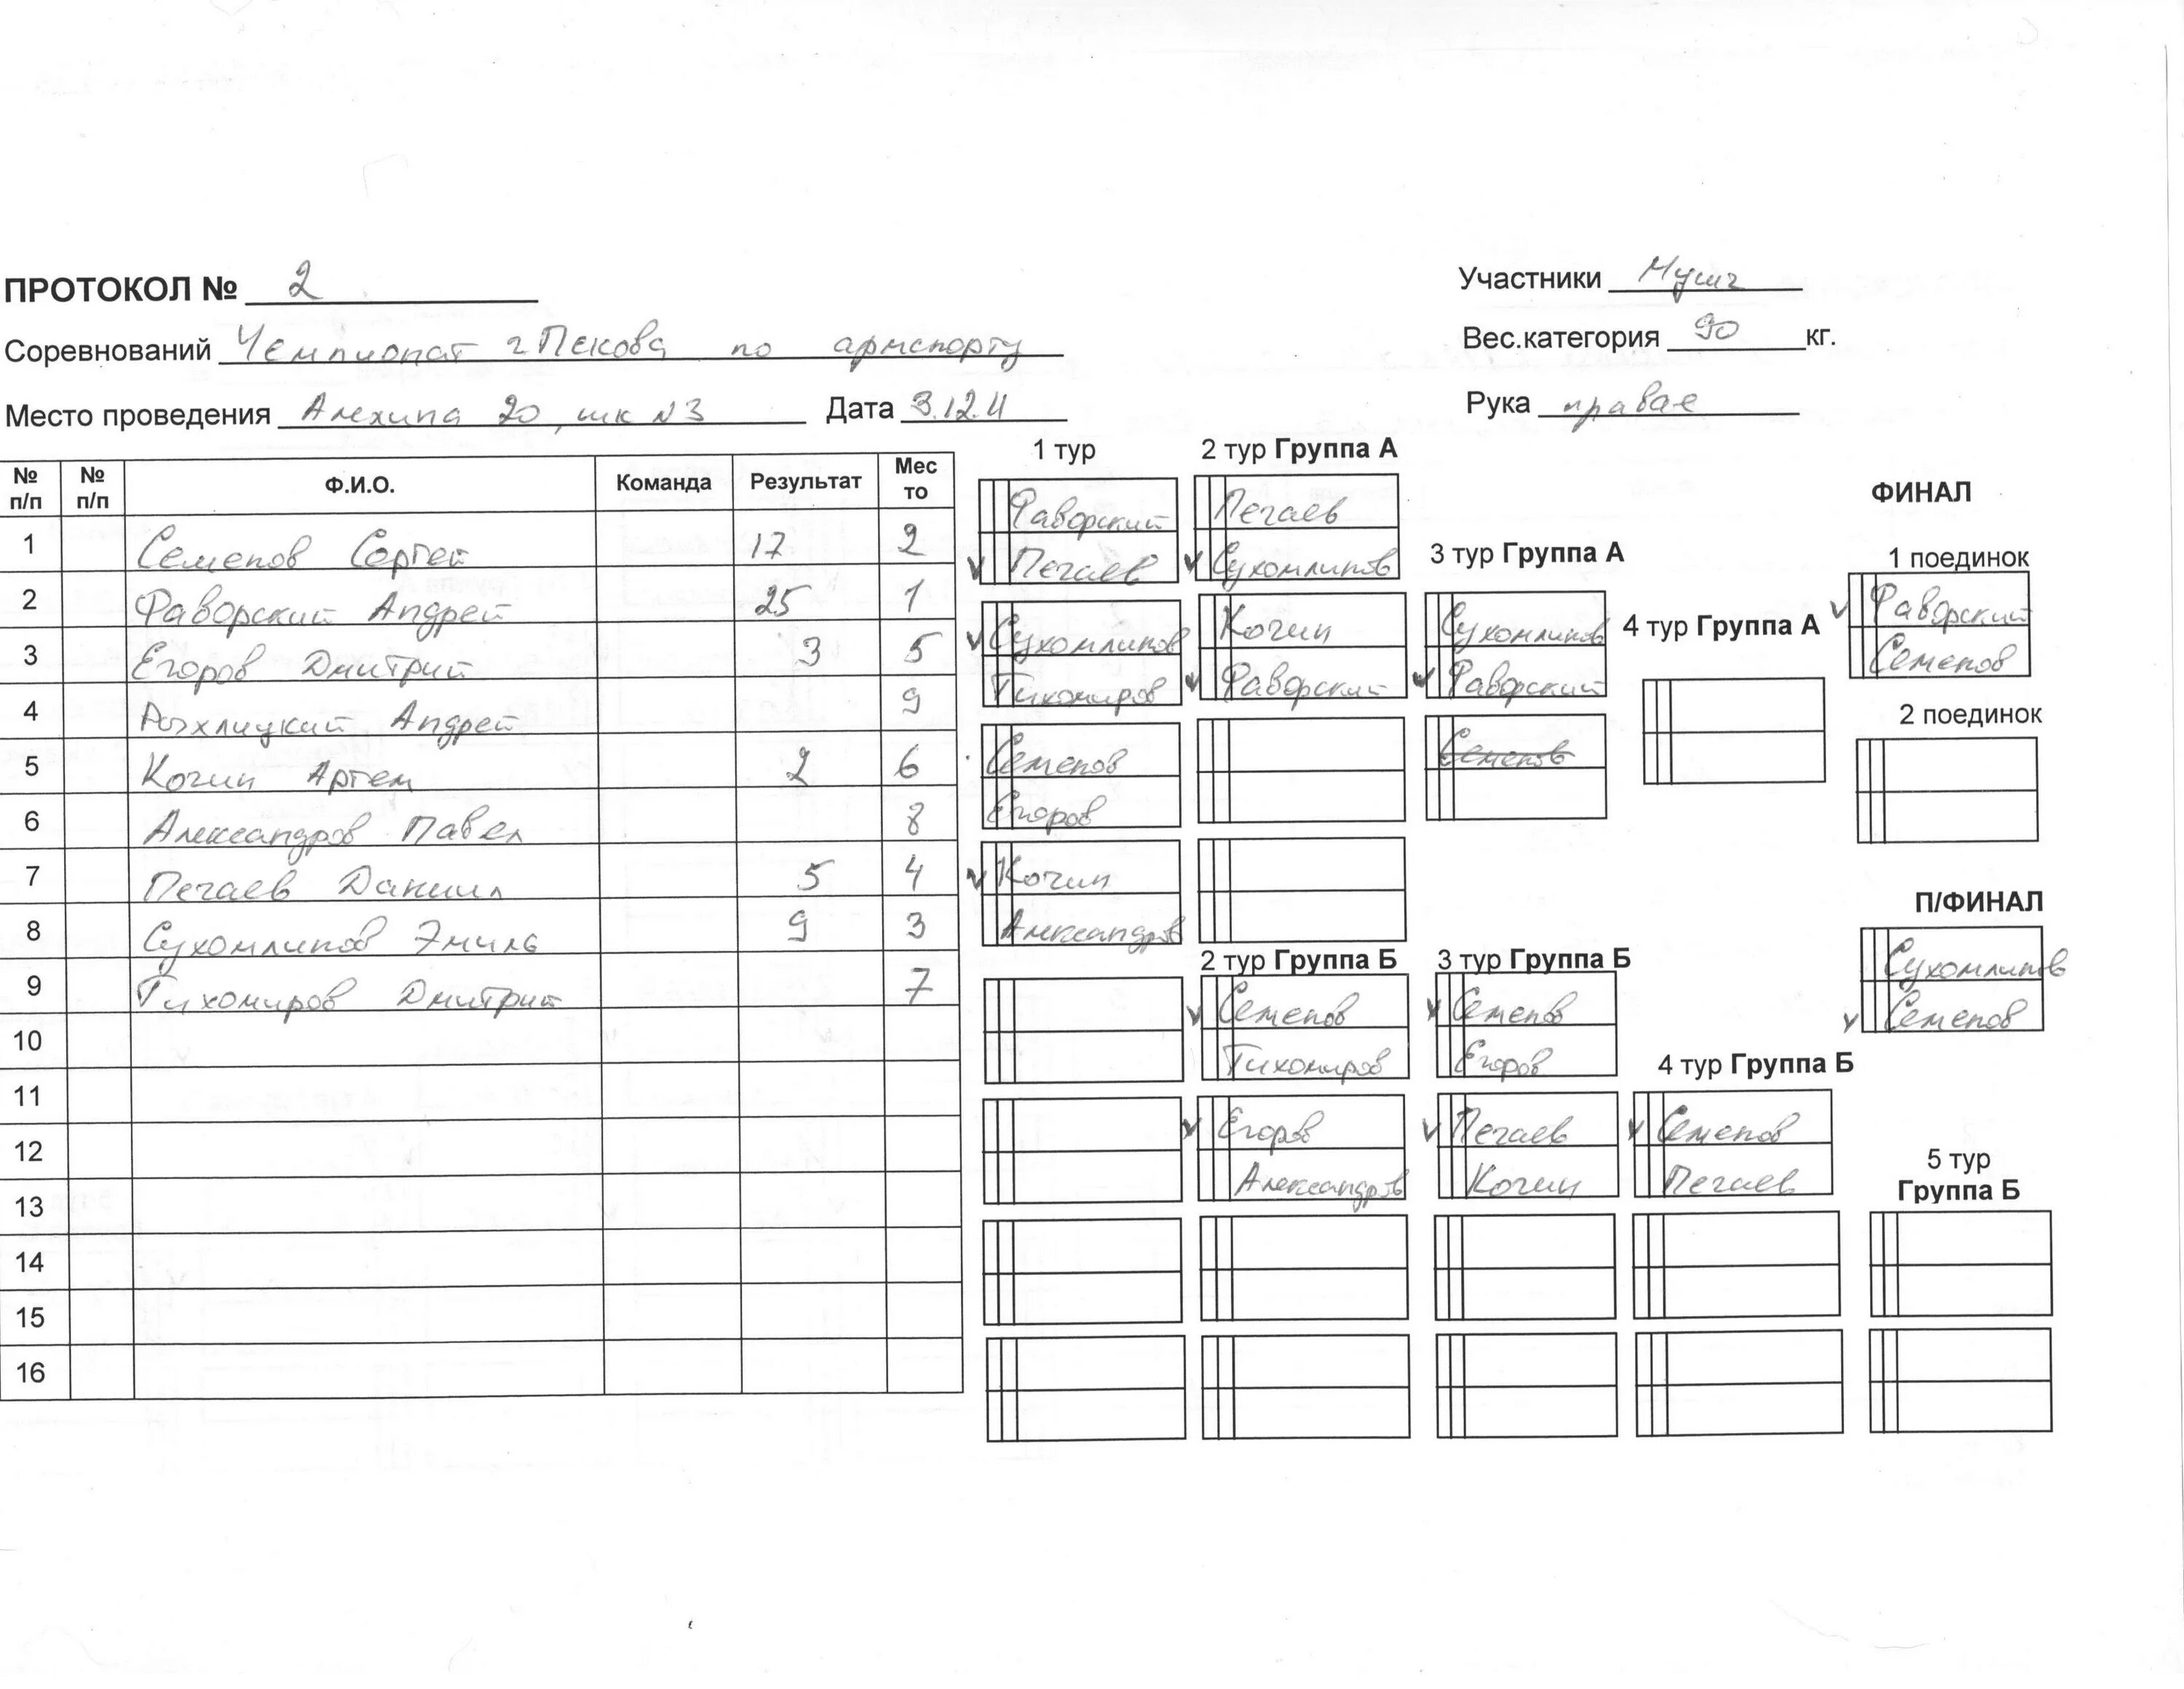 ПРОТОКОЛ № 2
Участники Мужч
Соревнований Чемпионат г Пскова по армспорту
Вес.категория 90 кг.
Место проведения Алехина 20, шк №3 Дата 3.12.11
Рука правая
№ п/п № п/п Ф.И.О. Команда Результат Место
1 Семенов Сергей 17 2
2 Фаворский Андрей 25 1
3 Егоров Дмитрий 3 5
4 Андрей 9
5 Кочин Артем 2 6
6 Александров Павел 8
7 Печаев Даниил 5 4
8 Сухомлинов Эмиль 9 3
9 Тихомиров Дмитрий 7
10
11
12
13
14
15
16
1 тур
Фаворский
Печаев
Сухомлинов
Тихомиров
Семенов
Егоров
Кочин
Александров
2 тур Группа А
Печаев
Сухомлинов
Кочин
Фаворский
3 тур Группа А
Сухомлинов
Фаворский
Семенов
4 тур Группа А
2 тур Группа Б
Семенов
Тихомиров
Егоров
Александров
3 тур Группа Б
Семенов
Егоров
Печаев
Кочин
4 тур Группа Б
Семенов
Печаев
5 тур
Группа Б
ФИНАЛ
1 поединок
Фаворский
Семенов
2 поединок
П/ФИНАЛ
Сухомлинов
Семенов